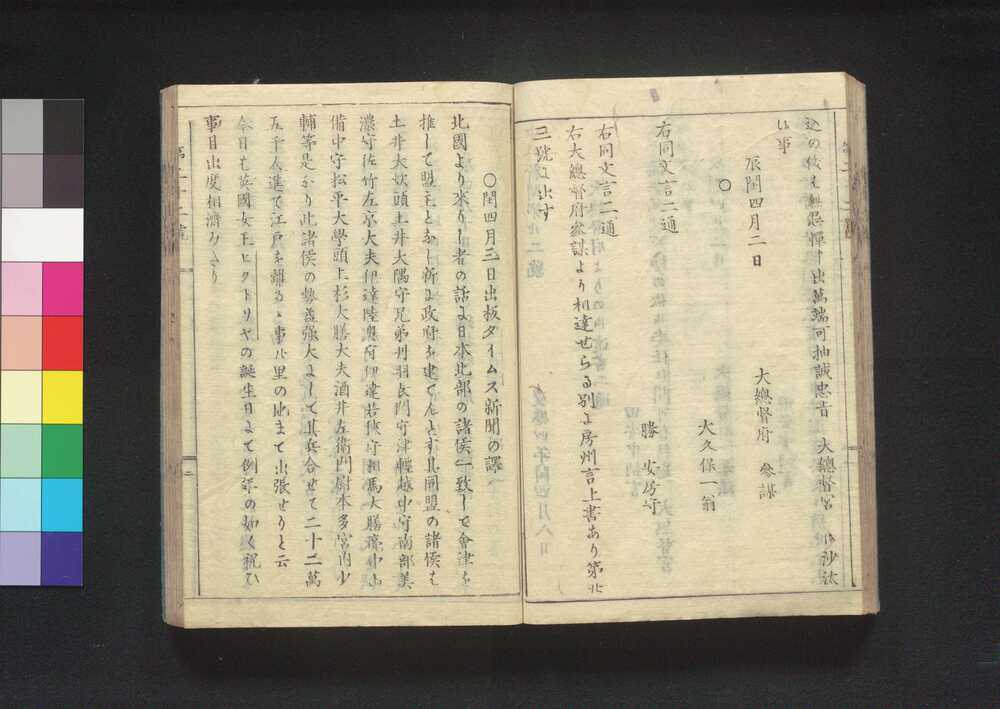 辰閏四月二日
大總督府 參謀
○
大久保一翁
右同文言二通
勝 安房守
右同文言二通
右大總督府參謀より相達せらる別よ房州言上書あり第廿
三號に出す
○閏四月三日出板タイムス新聞の譯
北國より來りし者の話よ日本北部の諸侯一致して會津を
推して盟主となし新よ政府を建てんとす其同盟の諸侯は
土井大炊頭土井大隅守兄弟丹羽長門守津輕越中守南部美
濃守佐竹左京大夫伊達陸奥守伊達若狹守相馬大膳亮
備中守松平大學頭上杉大膳大夫酒井左衛門尉本多宮内少
輔等是なり此諸侯の勢益強大よして其兵合せて二十二萬
五千人進て江戸を離るゝ事八里の地まて出張せりと云
今日は英國女王ヒクトリヤの誕生日よて例年の如く祝ひ
事目出度相濟みたり